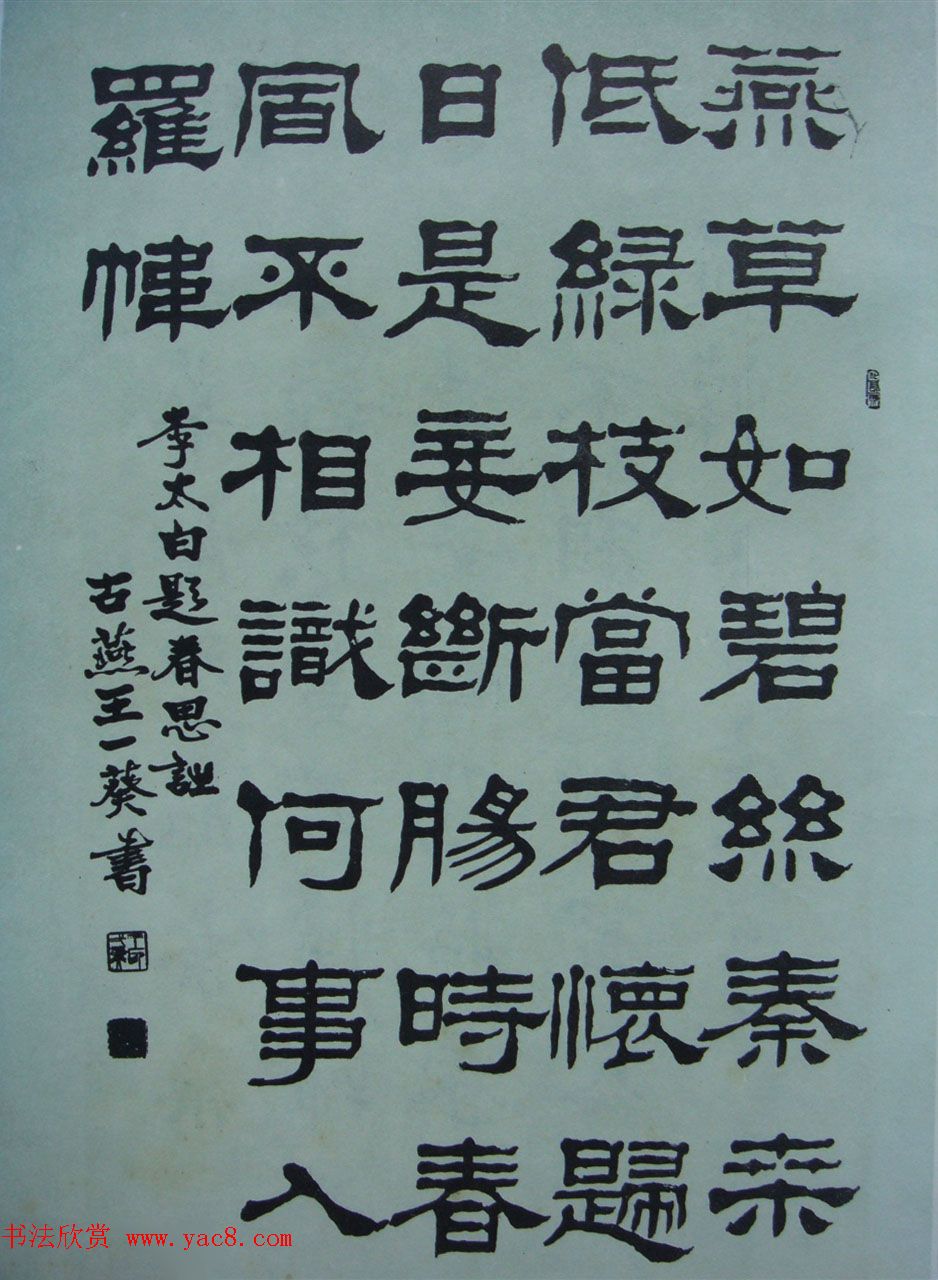 燕草如碧絲秦桒
低緑枝當君懷歸
日是妾斷腸時春
風不相識何事入
羅幃
李太白題春思詩
古燕王一葵書
书法欣赏 www.yac8.com